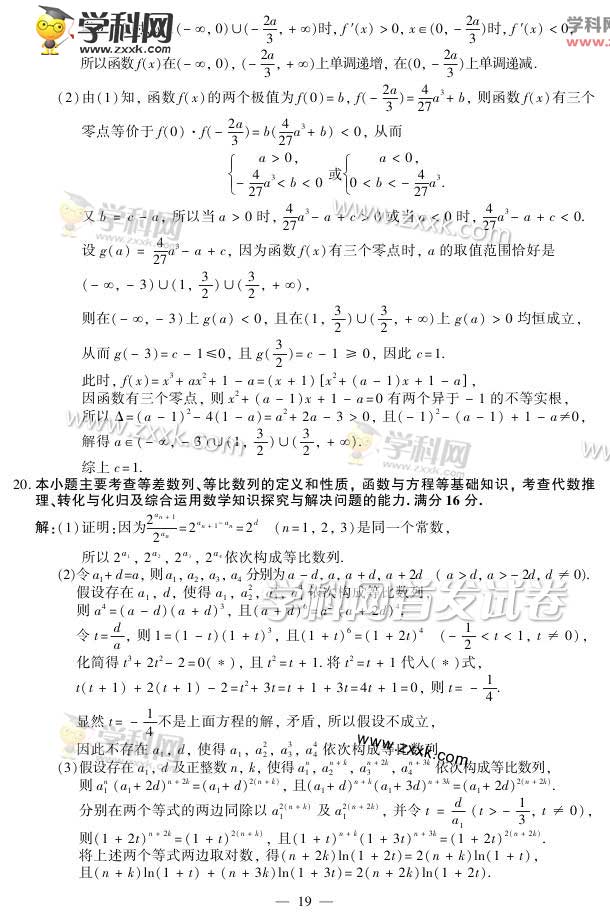 学科网 www.zxxk.com
(-∞, 0)∪(-2a/3, +∞)时, f′(x) > 0, x∈(0, -2a/3)时, f′(x) < 0,
所以函数f(x)在(-∞, 0), (-2a/3, +∞)上单调递增, 在(0, -2a/3)上单调递减.
(2)由(1)知, 函数f(x)的两个极值为f(0)=b, f(-2a/3)=4/27 a³+b, 则函数f(x)有三个
零点等价于f(0)·f(-2a/3)=b(4/27 a³+b) < 0, 从而
{a > 0, -4/27 a³ < b < 0 或{a < 0, 0 < b < -4/27 a³.
又 b = c - a, 所以当 a > 0 时, 4/27 a³ - a + c > 0 或当 a < 0 时, 4/27 a³ - a + c < 0.
设 g(a) = 4/27 a³ - a + c, 因为函数 f(x)有三个零点时, a 的取值范围恰好是
(-∞, -3)∪(1, 3/2)∪(3/2, +∞),
则在(-∞, -3)上 g(a) < 0, 且在(1, 3/2)∪(3/2, +∞)上 g(a) > 0 均恒成立,
从而 g(-3)=c-1≤0, 且 g(3/2)=c-1≥0, 因此 c=1.
此时, f(x)=x³+ax²+1-a=(x+1)[x²+(a-1)x+1-a],
因函数有三个零点, 则 x²+(a-1)x+1-a=0 有两个异于 -1 的不等实根,
所以 Δ=(a-1)²-4(1-a)=a²+2a-3 > 0, 且(-1)²-(a-1)+1-a≠0,
解得 a∈(-∞, -3)∪(1, 3/2)∪(3/2, +∞).
综上 c=1.
20. 本小题主要考查等差数列、等比数列的定义和性质, 函数与方程等基础知识, 考查代数推
理、转化与化归及综合运用数学知识探究与解决问题的能力. 满分 16 分.
解: (1)证明:因为2^(aₙ₊₁)/2^(aₙ)=2^(aₙ₊₁-aₙ)=2^d (n=1, 2, 3)是同一个常数,
所以 2^(a₁), 2^(a₂), 2^(a₃), 2^(a₄)依次构成等比数列.
(2)令 a₁+d=a, 则 a₁, a₂, a₃, a₄ 分别为 a-d, a, a+d, a+2d (a>d, a>-2d, d≠0).
假设存在 a₁, d, 使得 a₁, a₂², a₃³, a₄⁴ 依次构成等比数列,
则 a⁴=(a-d)(a+d)³, 且(a+d)⁶=a²(a+2d)⁴,
令 t=d/a, 则 1=(1-t)(1+t)³, 且(1+t)⁶=(1+2t)⁴ (-1/2 < t < 1, t≠0),
化简得 t³+2t²-2=0(*), 且 t²=t+1. 将 t²=t+1 代入(*)式,
t(t+1)+2(t+1)-2=t²+3t=t+1+3t=4t+1=0, 则 t=-1/4.
显然 t=-1/4不是上面方程的解, 矛盾, 所以假设不成立,
因此不存在 a₁, d, 使得 a₁, a₂², a₃³, a₄⁴ 依次构成等比数列.
(3)假设存在 a₁, d 及正整数 n, k, 使得 a₁ⁿ, a₂ⁿ⁺ᵏ, a₃ⁿ⁺²ᵏ, a₄ⁿ⁺³ᵏ 依次构成等比数列,
则 a₁ⁿ(a₁+2d)ⁿ⁺²ᵏ=(a₁+d)²⁽ⁿ⁺ᵏ⁾, 且(a₁+d)ⁿ⁺ᵏ(a₁+3d)ⁿ⁺³ᵏ=(a₁+2d)²⁽ⁿ⁺²ᵏ⁾.
分别在两个等式的两边同除以 a₁²⁽ⁿ⁺ᵏ⁾ 及 a₁²⁽ⁿ⁺²ᵏ⁾, 并令 t=d/a₁ (t>-1/3, t≠0),
则(1+2t)ⁿ⁺²ᵏ=(1+t)²⁽ⁿ⁺ᵏ⁾, 且(1+t)ⁿ⁺ᵏ(1+3t)ⁿ⁺³ᵏ=(1+2t)²⁽ⁿ⁺²ᵏ⁾.
将上述两个等式两边取对数, 得(n+2k)ln(1+2t)=2(n+k)ln(1+t),
且(n+k)ln(1+t)+(n+3k)ln(1+3t)=2(n+2k)ln(1+2t).
— 19 —